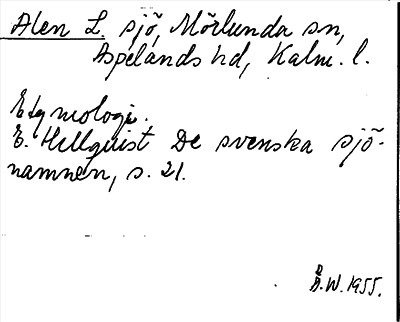 Alen L. sjö, Mörlunda sn,
Aspelands hd, Kalm. l.
Etymologi.
E. Hellquist De svenska sjö-
namnen, s. 21.
B.W. 1955.